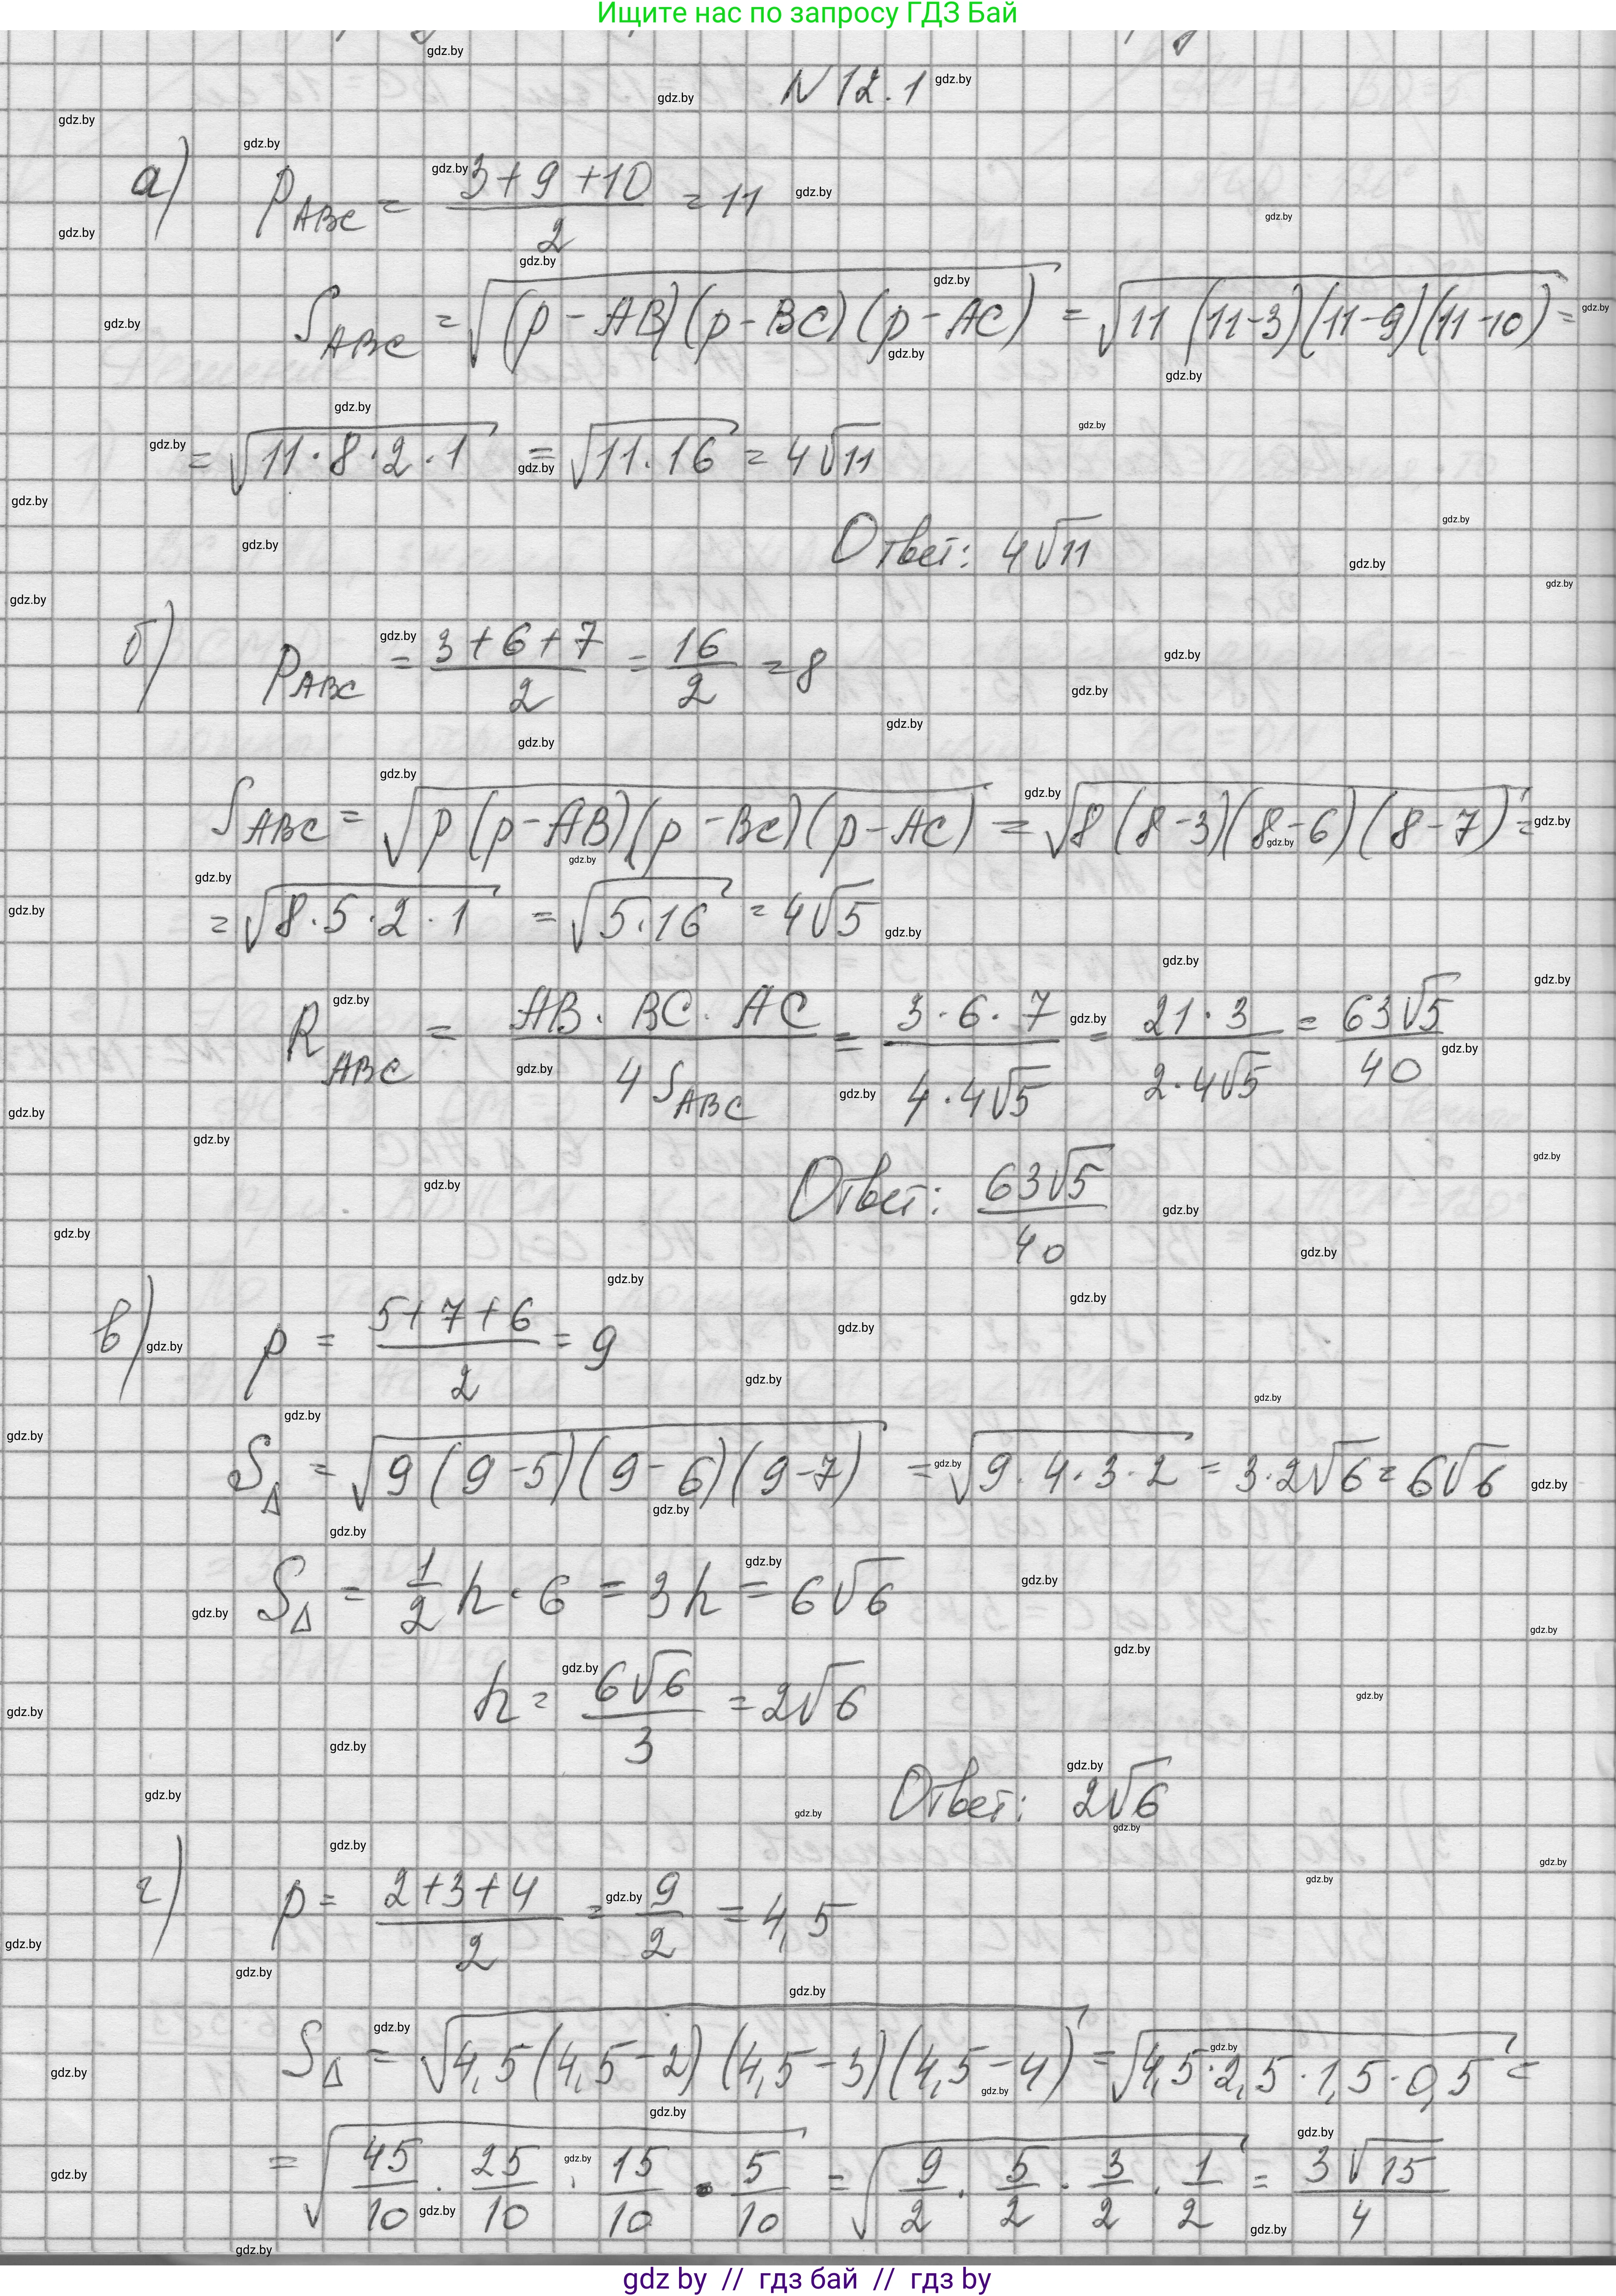 Ищите нас по запросу ГДЗ Бай
N 12.1
а) p_ABC = (3+9+10)/2 = 11
S_ABC = √((p-AB)(p-BC)(p-AC)) = √(11(11-3)(11-9)(11-10)) =
= √(11·8·2·1) = √(11·16) = 4√11
Ответ: 4√11
б) p_ABC = (3+6+7)/2 = 16/2 = 8
S_ABC = √(p(p-AB)(p-BC)(p-AC)) = √(8(8-3)(8-6)(8-7)) =
= √(8·5·2·1) = √(5·16) = 4√5
R_ABC = (AB·BC·AC)/(4S_ABC) = (3·6·7)/(4·4√5) = (21·3)/(2·4√5) = 63√5/40
Ответ: 63√5/40
в) p = (5+7+6)/2 = 9
S_Δ = √(9(9-5)(9-6)(9-7)) = √(9·4·3·2) = 3·2√6 = 6√6
S_Δ = 1/2 h·6 = 3h = 6√6
h = 6√6/3 = 2√6
Ответ: 2√6
г) p = (2+3+4)/2 = 9/2 = 4,5
S_Δ = √(4,5(4,5-2)(4,5-3)(4,5-4)) = √(4,5·2,5·1,5·0,5) =
= √(45/10 · 25/10 · 15/10 · 5/10) = √(9/2 · 5/2 · 3/2 · 1/2) = 3√15/4
gdz by // гдз бай // гдз by